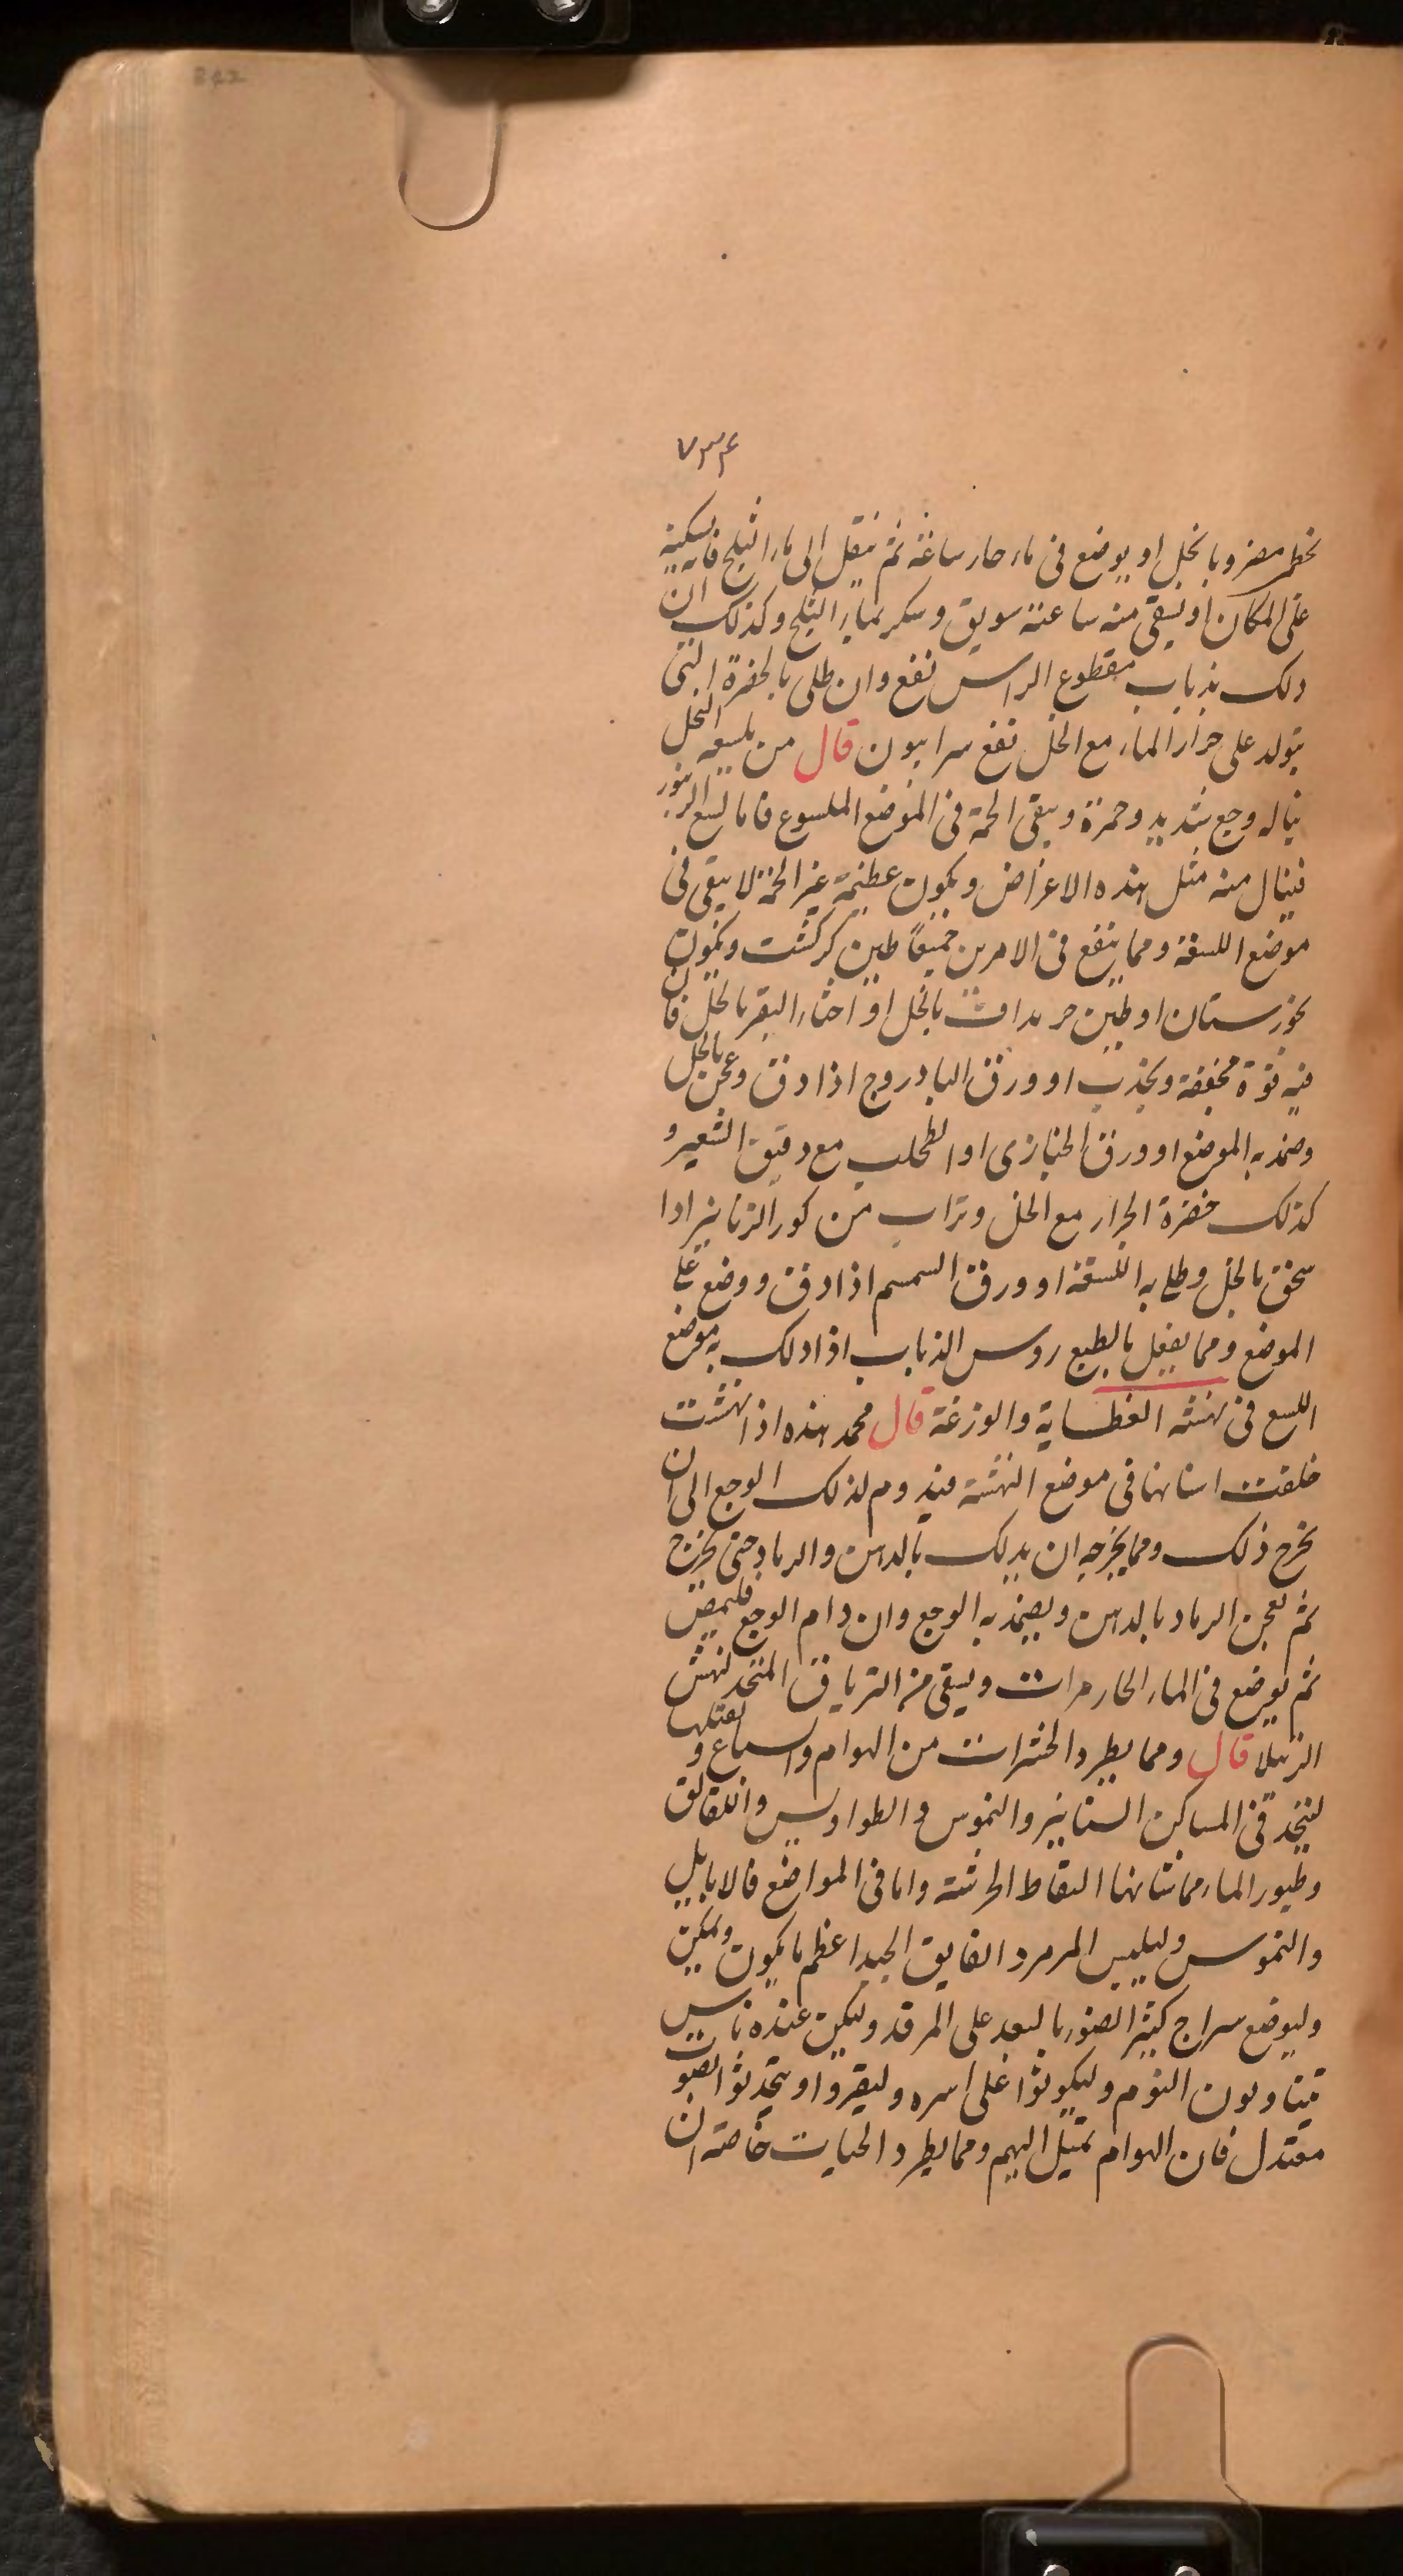 842
۷۳۴
بخطمر مضروبا بخل او يوضع فى ماء حار ساعة ثم ينقل الى ماء الثلج فانه يسكنه
على المكان او يسقى منه ساعته سويق وسكر بماء الثلج وكذلك ان
دلك بذباب مقطوع الراس نفع وان طلى بالخضرة التى
يتولد على جرار الماء مع الخل نفع سرابيون قال من يلسعه النحل
يناله وجع شديد وحمرة ويبقى الحمة فى الموضع الملسوع فاما لسع الزنبور
فينال منه مثل هذه الاعراض ويكون عظيمة غير الحمة لا يبقى فى
موضع اللسعة ومما ينفع فى الامرين جميعًا طين كركشت ويكون
بخوزستان او طين حر يداف بالخل او اخثاء البقر بالخل فان
فيه قوة مجففة ويجذب او ورق البادروج اذا دق وعجن بالخل
وضمد به الموضع او ورق الخبازى او الطحلب مع دقيق الشعير و
كذلك خضرة الجرار مع الخل وتراب من كور الزنابير اذا
سحق بالخل وطلى به اللسعة او ورق السمسم اذا دق ووضع على
الموضع ومما يفعل بالطبع روس الذباب اذا دلك به موضع
اللسع فى نهشه العظاية والوزغة قال محمد هذه اذا نهشت
خلفت اسنانها فى موضع النهشة فيدوم لذلك الوجع الى ان
يخرج ذلك ومما يخرجه ان يدلك بالدهن والرماد حتى يخرج
ثم يعجن الرماد بالدهن ويضمد به الوجع وان دام الوجع فليمص
ثم يوضع فى الماء الحار مرات ويسقى من الترياق المتخذ لنهش
الرتيلا قال ومما يطرد الحشرات من الهوام والسباع و يقتلها
ليتخذ فى المساكن السنانير والنموس والطواويس واللقالق
وطيور الماء مما شانها التقاط الحرشة واما فى المواضع فالابابيل
والنموس وليلبس المرمرد الفايق الجيد اعظم ما يكون وليكن
وليوضع سراج كثير الضوء بالبعد على المرقد وليكن عنده ناس
يتناوبون النوم وليكونوا على اسره وليقروا او يتحدثوا بصوت
معتدل فان الهوام تميل اليهم ومما يطرد الحيات خاصته ان